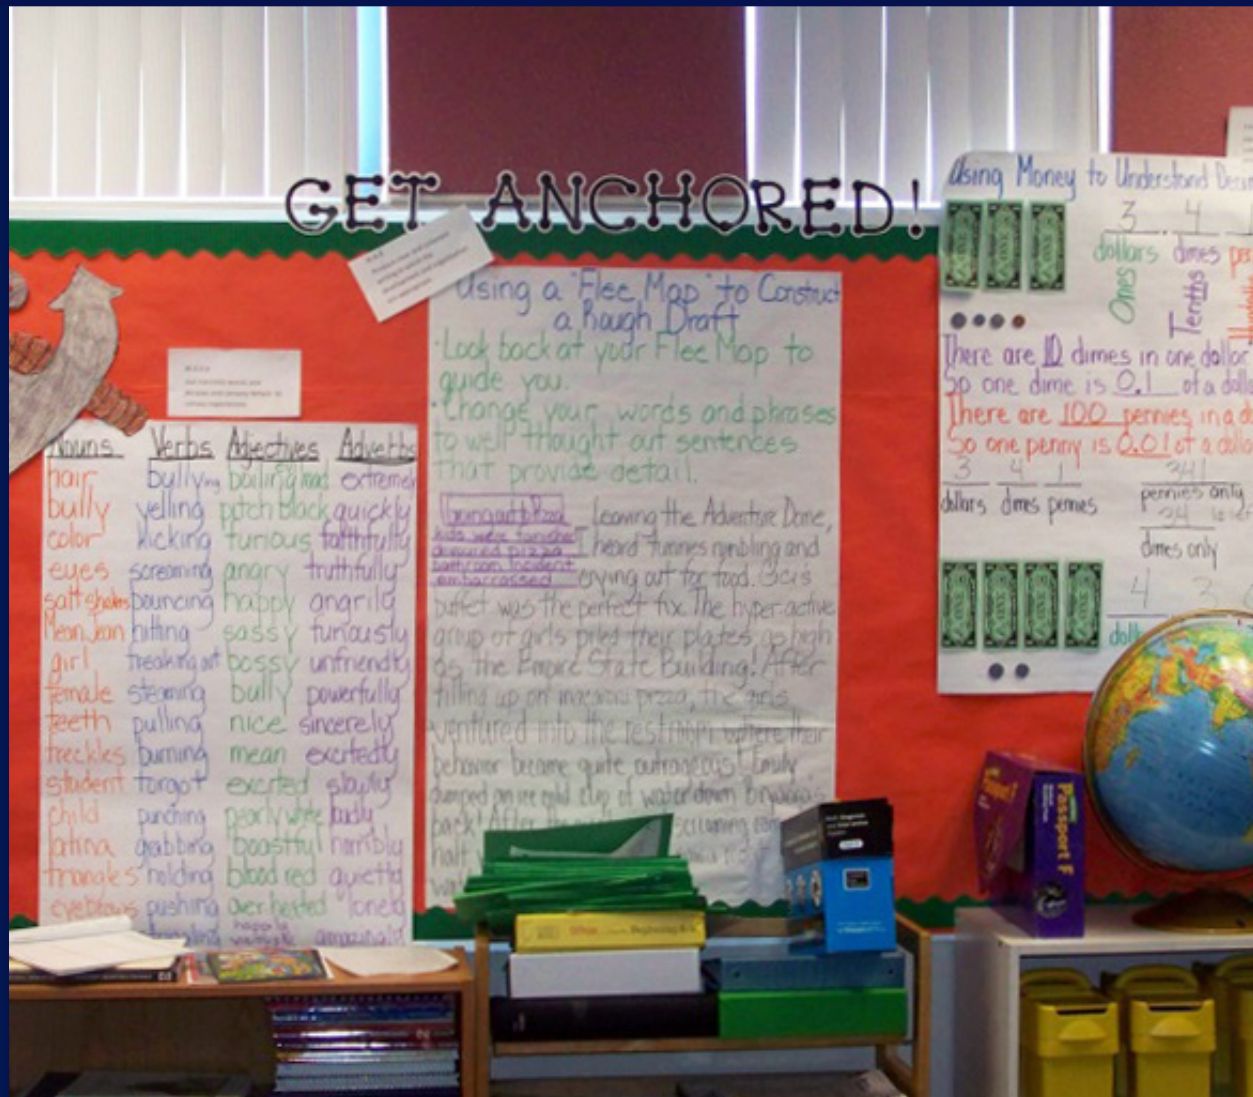 GET ANCHORED!
Nouns Verbs Adjectives Adverbs
hair bullying boiling mad extremely
bully yelling pitch black quickly
color kicking furious faithfully
eyes screaming angry truthfully
salt shakers bouncing happy angrily
Mean Jean hitting sassy furiously
girl freaking out bossy unfriendly
female steaming bully powerfully
teeth pulling nice sincerely
freckles burning mean excitedly
student forgot excited
child punching pearly white badly
latina grabbing boastful horribly
triangles holding blood red quietly
eyebrows pushing over heated lonely
Using a "Flee Map" to Construct
a Rough Draft
·Look back at your Flee Map to
guide you.
·Change your words and phrases
to well thought out sentences
that provide detail.
devoured pizza
bathroom incident
embarrassed
Leaving the Adventure Dome,
I heard tummies rumbling and
crying out for food.
buffet was the perfect fix. The hyper active
group of girls piled their plates as high
as the Empire State Building! After
filling up on pizza, the girls
ventured into the restroom where their
behavior became quite outrageous! Emily
dumped an ice cold cup of water down
back! After screaming
Using Money to Understand
3 . 4
dollars dimes
Ones
Tenths
There are 10 dimes in one dollar
So one dime is 0.1 of a
There are 100 pennies in a
So one penny is 0.01 of a
3 4 1 341
dollars dimes pennies pennies only
34
dimes only
4 3
Passport F